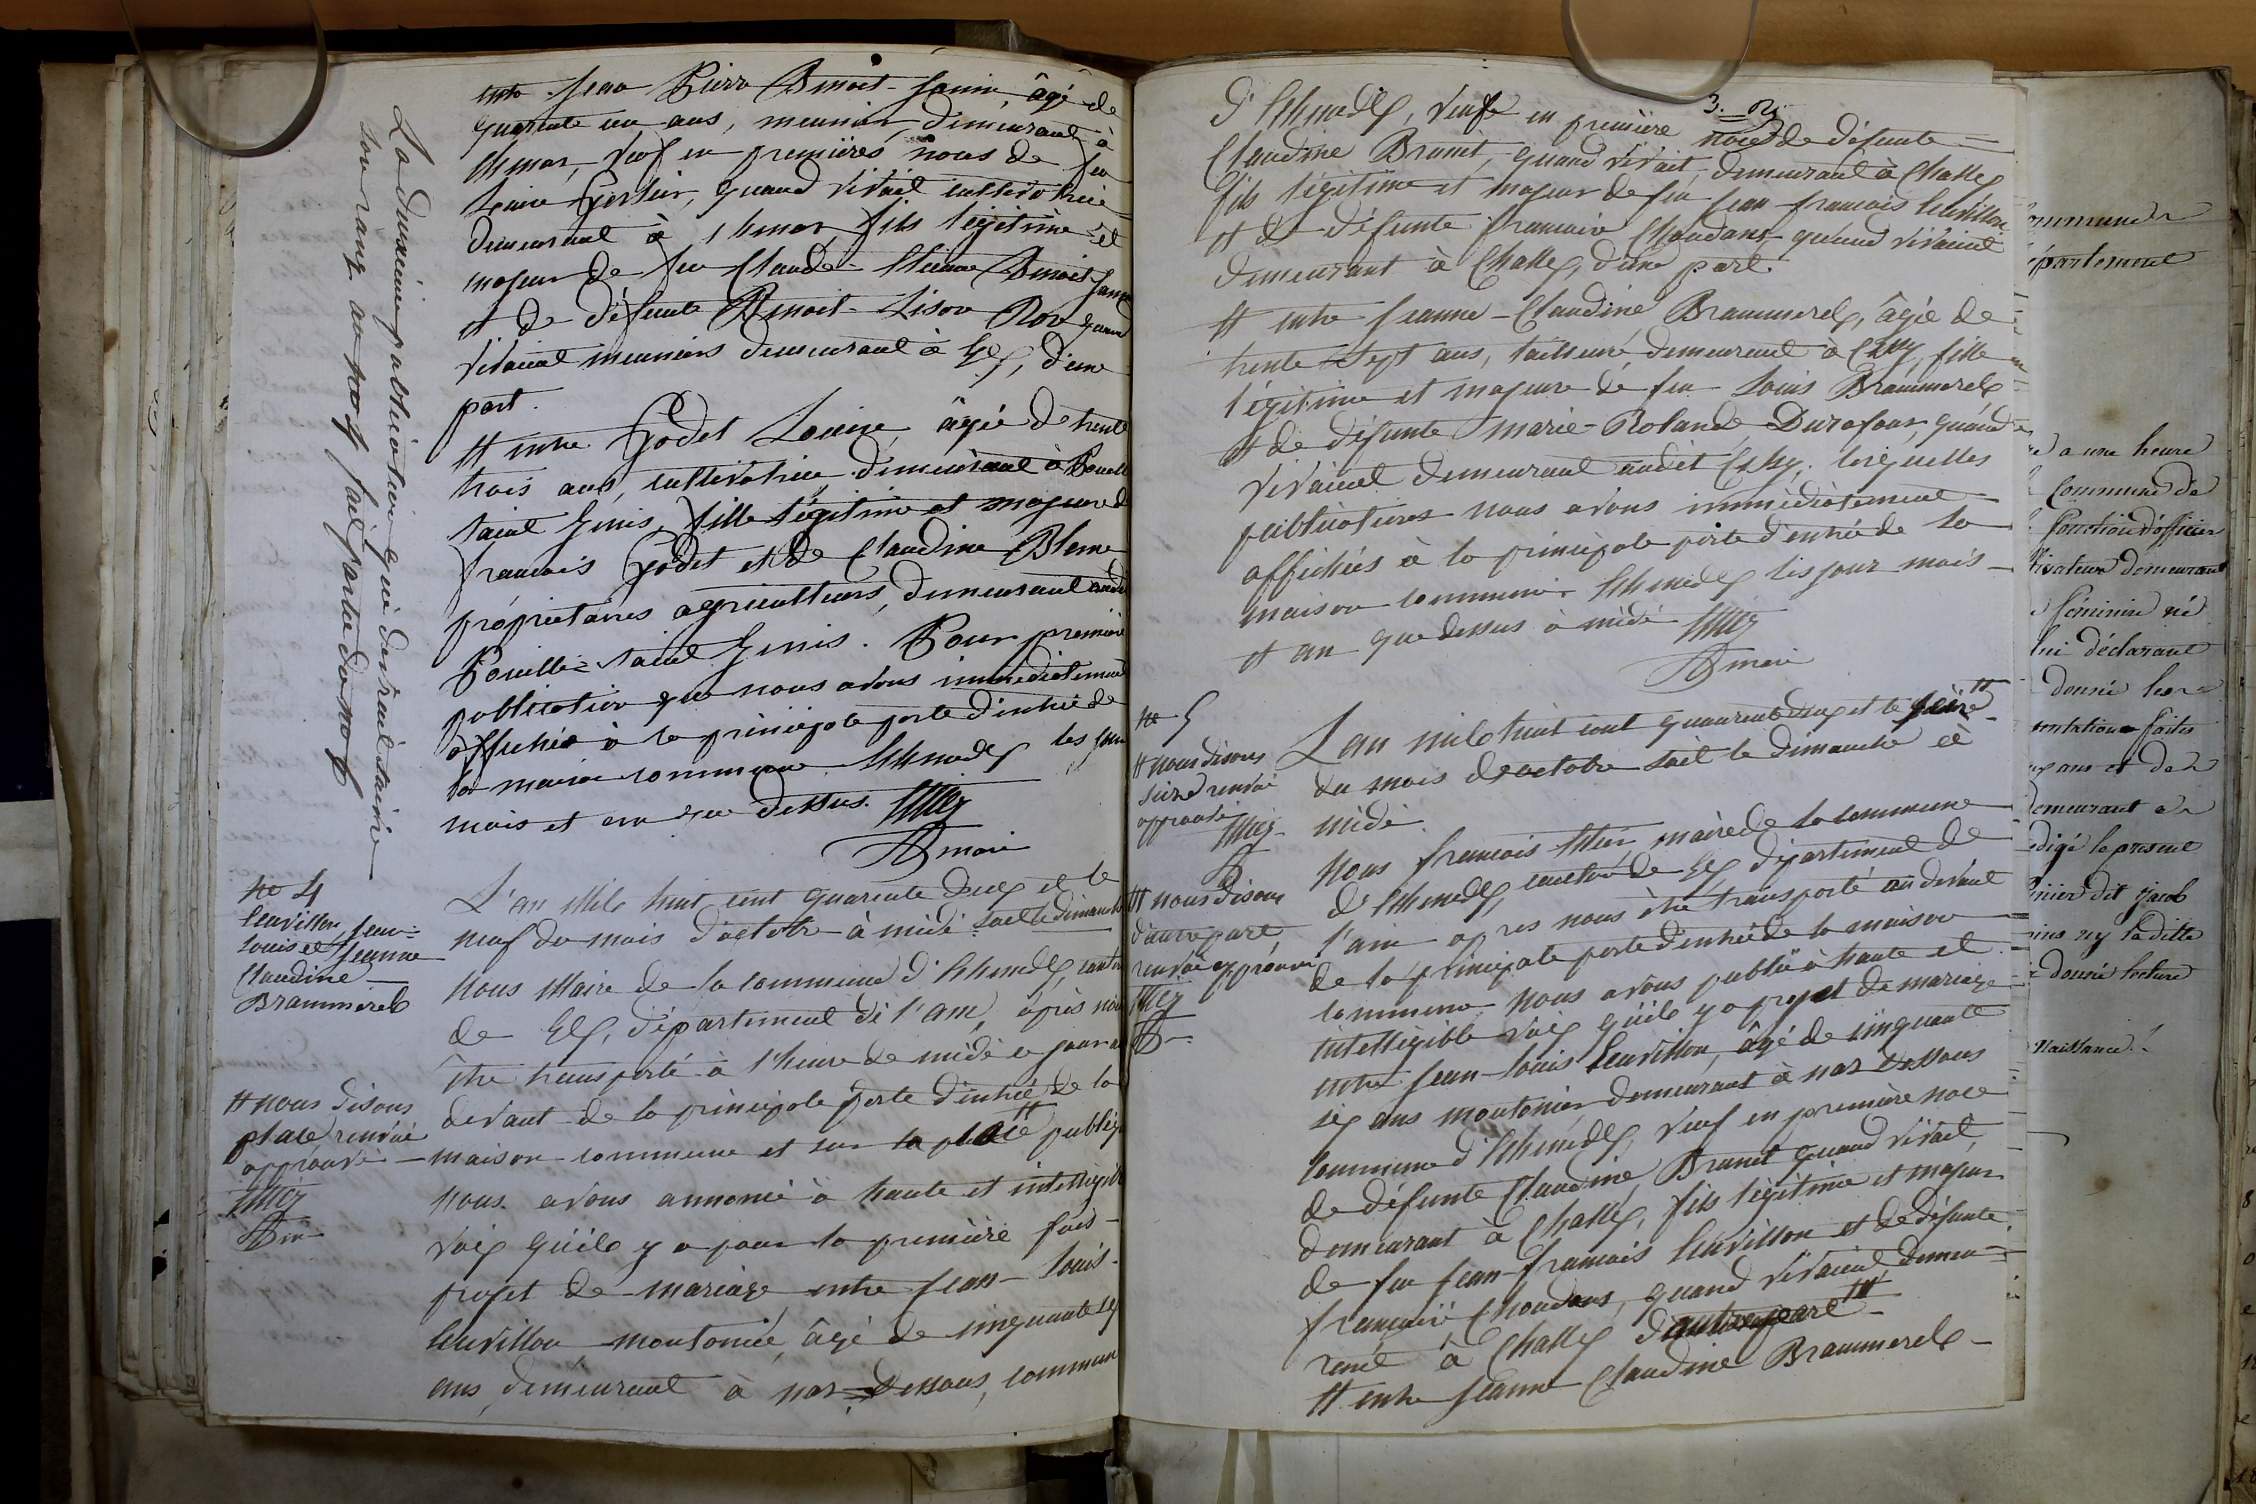 entre Jean Pierre Benoit-Janin, âgé de
quarante un ans, meunier, demeurant à
veuf en premières noces de feu
Louise quand vivait cultivatrice
demeurant à fils légitime et
majeur de feu Claude Etienne Benoit-Janin
et de défunte Benoit quand
vivaient meuniers demeurant à d'une
part.
Et entre Godet Louise, âgée de trente
trois ans, cultivatrice, demeurant à Pouilli
saint Genis, fille légitime et majeure de
francois Godet et de Claudine Blanc
propriétaires agriculteurs, demeurant audit
Pouilli-saint Genis. Pour première
publication que nous avons immédiatement
affichée à la principale porte d'entrée de
la maison commune les jour
mois et an que dessus.
maire
La deuxième publication qui devrait suivre
son rang au no 4 fait partie du no 6
no 4
Cuvillon, Jean-
Louis et Jeanne
Claudine
Brammerel
L'an Mile huit cent quarante deux et le
neuf du mois d'octobre à midi soit le dimanche
Nous Maire de la commune d' canton
de département de l'ain, après nous
être transporté à l'heure de midi ce jour au
devant de la principale porte d'entrée de la
maison commune et sur la place publique
nous avons annoncé à haute et intelligible
voix quil y a pour la première fois
projet de mariage entre Jean-Louis
Cuvillon moutonnié, âgé de cinquante six
ans, demeurant à Naz-Dessous, commune
# nous disons
place renvoi
approuvé
3.
d' veuf en première noces de défunte
Claudine Brunet, quand vivait, demeurant à Challex
fils légitime et majeur de feu Jean-francois Cuvillon
et de défunte francoise Choudans quand vivaient
demeurant à Challex, d'une part.
Et entre Jeanne-Claudine Brammerel, âgée de
trente sept ans, tailleuse, demeurant à fille
légitime et majeure de feu Louis Brammerel
et de défunte Marie-Rolande Durafour, quand
vivaient demeurant audit lesquelles
publications nous avons immédiatement
affichées à la principale porte d'entrée de la
maison commune les jour mois
et an que dessus à midi
maire
no 5
# nous disons
seize renvoi
approuvé
L'an mile huit cent quarante deux et le seize #
du mois de octobre soit le dimanche à
midi.
Nous francois maire de la commune
d' canton de département de
l'ain après nous être transporté au devant
de la principale porte d'entrée de la maison
commune nous avons publié à haute et
intelligible voix quil y a projet de mariage
entre Jean-Louis Cuvillon, âgé de cinquante
six ans moutonier demeurant à Naz Dessous
commune d' veuf en première noce
de défunte Claudine Brunet quand vivait,
demeurant à Challex, fils légitime et majeur
de feu Jean-francois Cuvillon et de défunte
francoise Choudans, quand vivaient demeu-
rant à Challex d'autre part ##
Et entre Jeanne Claudine Brammerel
## nous disons
d'autre part
renvoi approuvé
commune de
département
a une heure
Commune de
fonction d'officier
cultivateur demeurant
féminin né
lui déclarant
donné les
présentation faites
ans et de
demeurant à
rédigé le présent
dit Jacob
ny la ditte
donné lecture
naissance